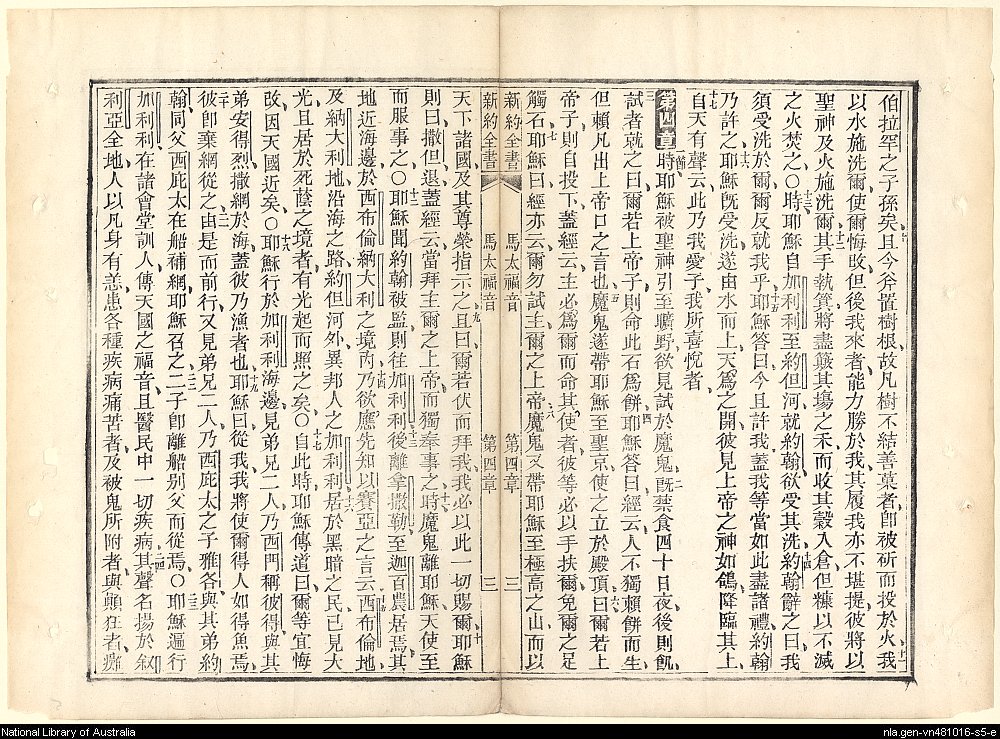 伯拉罕之子孫矣且今斧置樹根故凡樹不結善菓者卽被斫而投於火我
以水施洗爾使爾悔改但後我來者能力勝於我其履我亦不堪提彼將以
聖神及火施洗爾其手執箕將盡簸其塲之禾而收其穀入倉但糠以不滅
之火焚之〇時耶穌自加利利至約但河就約翰欲受其洗約翰辭之曰我
須受洗於爾爾反就我乎耶穌答曰今且許我蓋我等當如此盡諸禮約翰
乃許之耶穌旣受洗遂由水而上天爲之開彼見上帝之神如鴿降臨其上
自天有聲云此乃我愛子我所喜悅者
第四章 時耶穌被聖神引至曠野欲見試於魔鬼旣禁食四十日夜後則飢
試者就之曰爾若上帝子則命此石爲餅耶穌答曰經云人不獨賴餅而生
但賴凡出上帝口之言也魔鬼遂帶耶穌至聖京使之立於殿頂曰爾若上
帝子則自投下蓋經云主必爲爾而命其使者彼等必以手扶爾免爾之足
觸石耶穌曰經亦云爾勿試主爾之上帝魔鬼又帶耶穌至極高之山而以
新約全書 馬太福音 第四章 三
新約全書 馬太福音 第四章 三
天下諸國及其尊榮指示之且曰爾若伏而拜我我必以此一切賜爾耶穌
則曰撒但退蓋經云當拜主爾之上帝而獨奉事之時魔鬼離耶穌天使至
而服事之〇耶穌聞約翰被監則往加利利後離拿撒勒至迦百農居焉其
地近海邊於西布倫納大利之境內乃欲應先知以賽亞之言云西布倫地
及納大利地沿海之路約但河外異邦人之加利利居於黑暗之民已見大
光且居於死蔭之境者有光起而照之矣〇自此時耶穌傳道曰爾等宜悔
改因天國近矣〇耶穌行於加利利海邊見弟兄二人乃西門稱彼得與其
弟安得烈撒網於海蓋彼乃漁者也耶穌曰從我我將使爾得人如得魚焉
彼卽棄網從之由是而前行又見弟兄二人乃西庇太之子雅各與其弟約
翰同父西庇太在船補網耶穌召之二子卽離船別父而從焉〇耶穌遍行
加利利在諸會堂訓人傳天國之福音且醫民中一切疾病其聲名揚於叙
利亞全地人以凡身有恙患各種疾病痛苦者及被鬼所附者與顚狂者癱
National Library of Australia
nla.gen-vn481016-s5-e